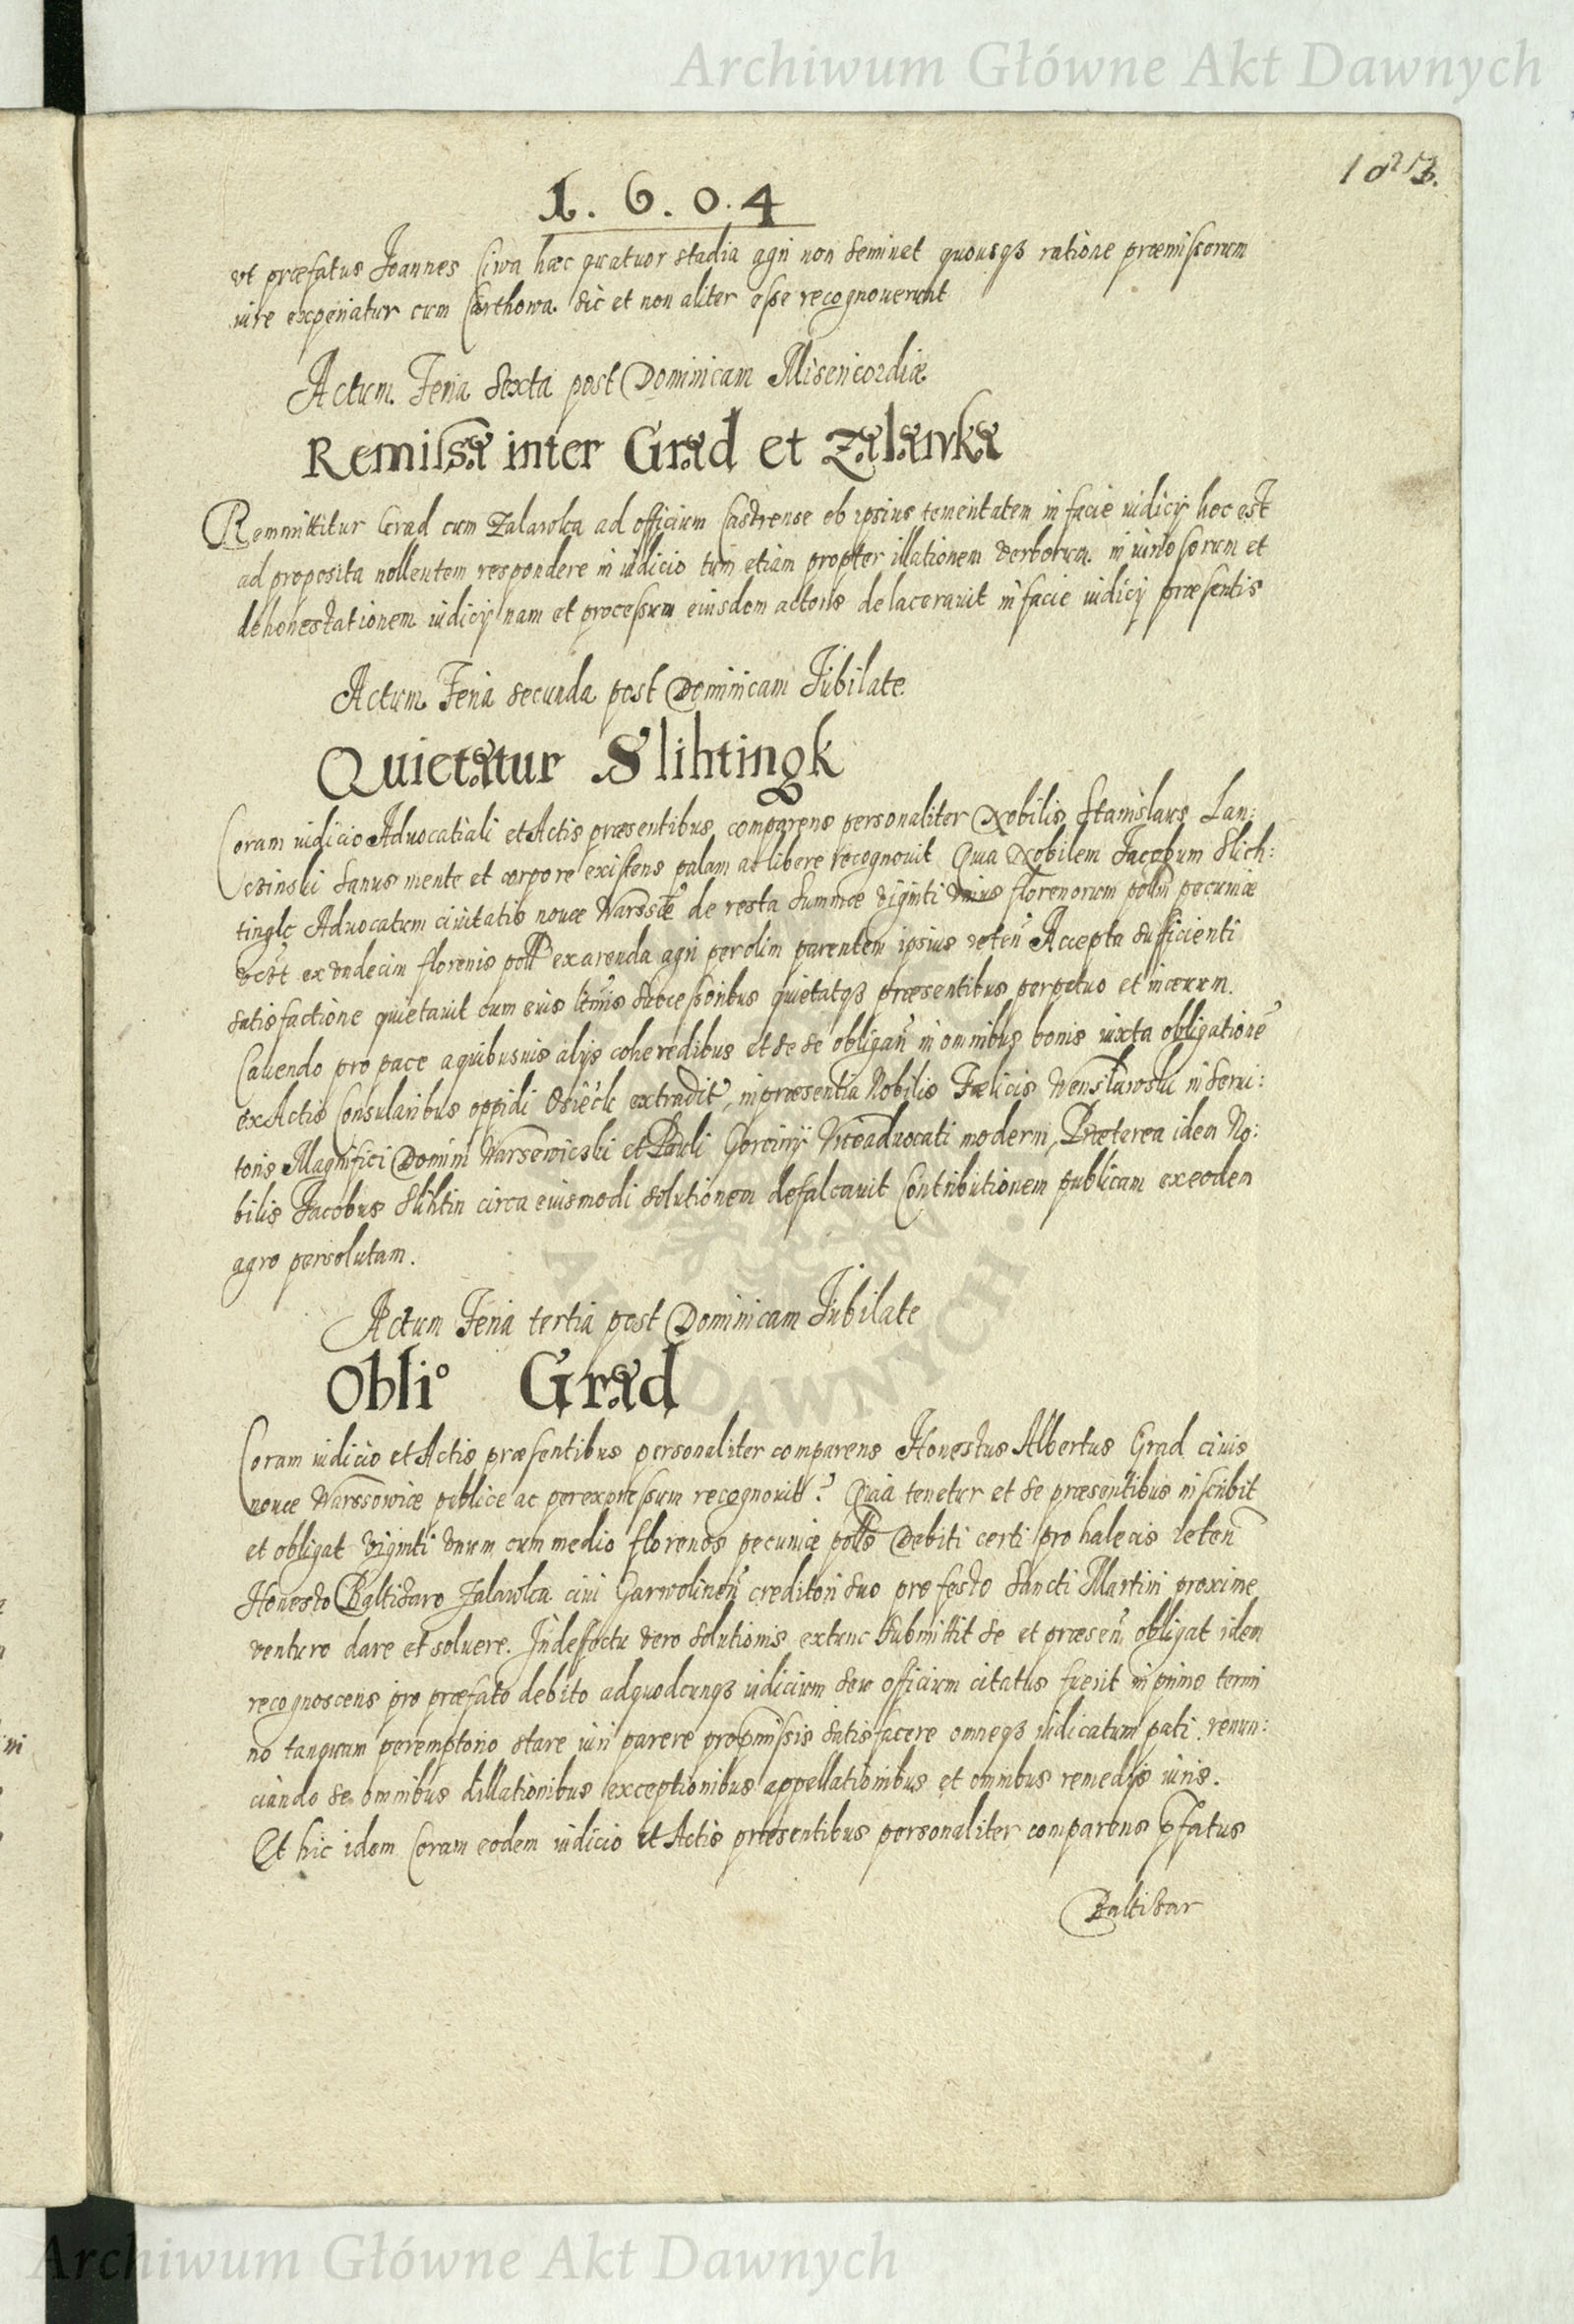 Archiwum Główne Akt Dawnych
1. 6. 0. 4
vt præfatus Joannes Siwa hæc quatuor stadia agri non seminet quousqȝ ratione præmissorum
iure experiatur cum Carthowa. Sic et non aliter esse recognouerunt
Actum Feria Sexta post Dominicam Misericordiæ
Remissa inter Grad et Zalawka
Remmittitur Grad cum Zalawka ad officium Castrense ob ipsius temeritatem in facie iudicij hoc est
ad proposita nollentem respondere in iudicio tum etiam propter illationem verborum iniuriosorum et
dehonestationem iudicij nam et processum eiusdem actoris delacerauit in facie iudicij præsentis
Actum Feria Secunda post Dominicam Jubilate
Quietatur Slihtingk
Coram iudicio Aduocatiali et Actis præsentibus comparens personaliter Nobilis Stanislaus Lan:
Sanus mente et corpore existens palam ac libere recognouit Quia Nobilem Jacobum Slich:
tingk Aduocatum ciuitatis nouæ de resta Summæ viginti vnius florenorum pecuniæ
ex vndecim florenis ex arenda agri per olim parentem ipsius Accepta sufficienti
satisfactione quietauit cum eius successoribus quietatqȝ præsentibus perpetuo et in æuum.
Cauendo pro pace a quibusuis alijs coheredibus et se se obligan in omnibus bonis iuxta obligatione
ex Actis Consularibus oppidi Osieck extradit, in præsentia Nobilis Fælicis in serui:
toris Magnifici Domini Warsewicski et Pauli Viceaduocati moderni, Præterea idem No:
bilis Jacobus Slihtin circa eiusmodi solutionem defalcauit Contributionem publicam ex eodem
agro persolutam.
Actum Feria tertia post Dominicam Jubilate
Obli° Grad
Coram iudicio et Actis præsentibus personaliter comparens Honestus Albertus Grad ciuis
nouæ Warssowiæ publice ac per expressum recognouit? Quia tenetur et se præsentibus inscribit
et obligat viginti vnum cum medio florenos pecuniæ Debiti certi pro halecis
Honesto Baltisaro Zalawka ciui Garwolinen creditori suo pro festo Sancti Martini proxime
venturo dare et soluere. In deffectu vero solutionis extunc Submittit se et præsen obligat idem
recognoscens pro præfato debito ad quodcunqȝ iudicium seu officium citatus fuerit in primo termi
no tanquam peremptorio stare iuri parere satisfacere omneqȝ iudicatum pati. renun:
ciando se omnibus dillationibus exceptionibus appellationibus et omnibus remedijs iuris.
Et hic idem Coram eodem iudicio et Actis præsentibus personaliter comparens pfatus
Baltisar
Archiwum Główne Akt Dawnych